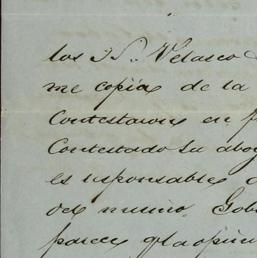 los Srs. Velasco
me copia de la
Contestacion en
Contestado su abog
es responsables
del mismo. Gob
parece q. la opin